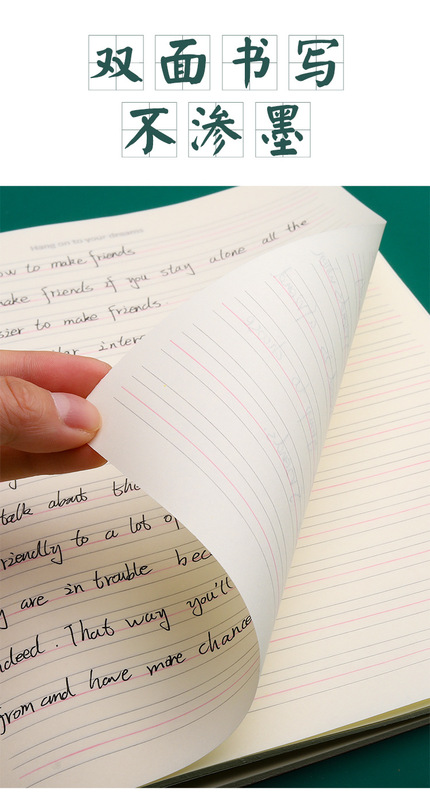 双面书写
不渗墨
Hang on to your dreams
ow to make friends
make friends if you stay alone all the
sier to make friends.
talk about the
riendly to a lot of
y are in trouble bec
ndeed. That way you'll
from and have more chance